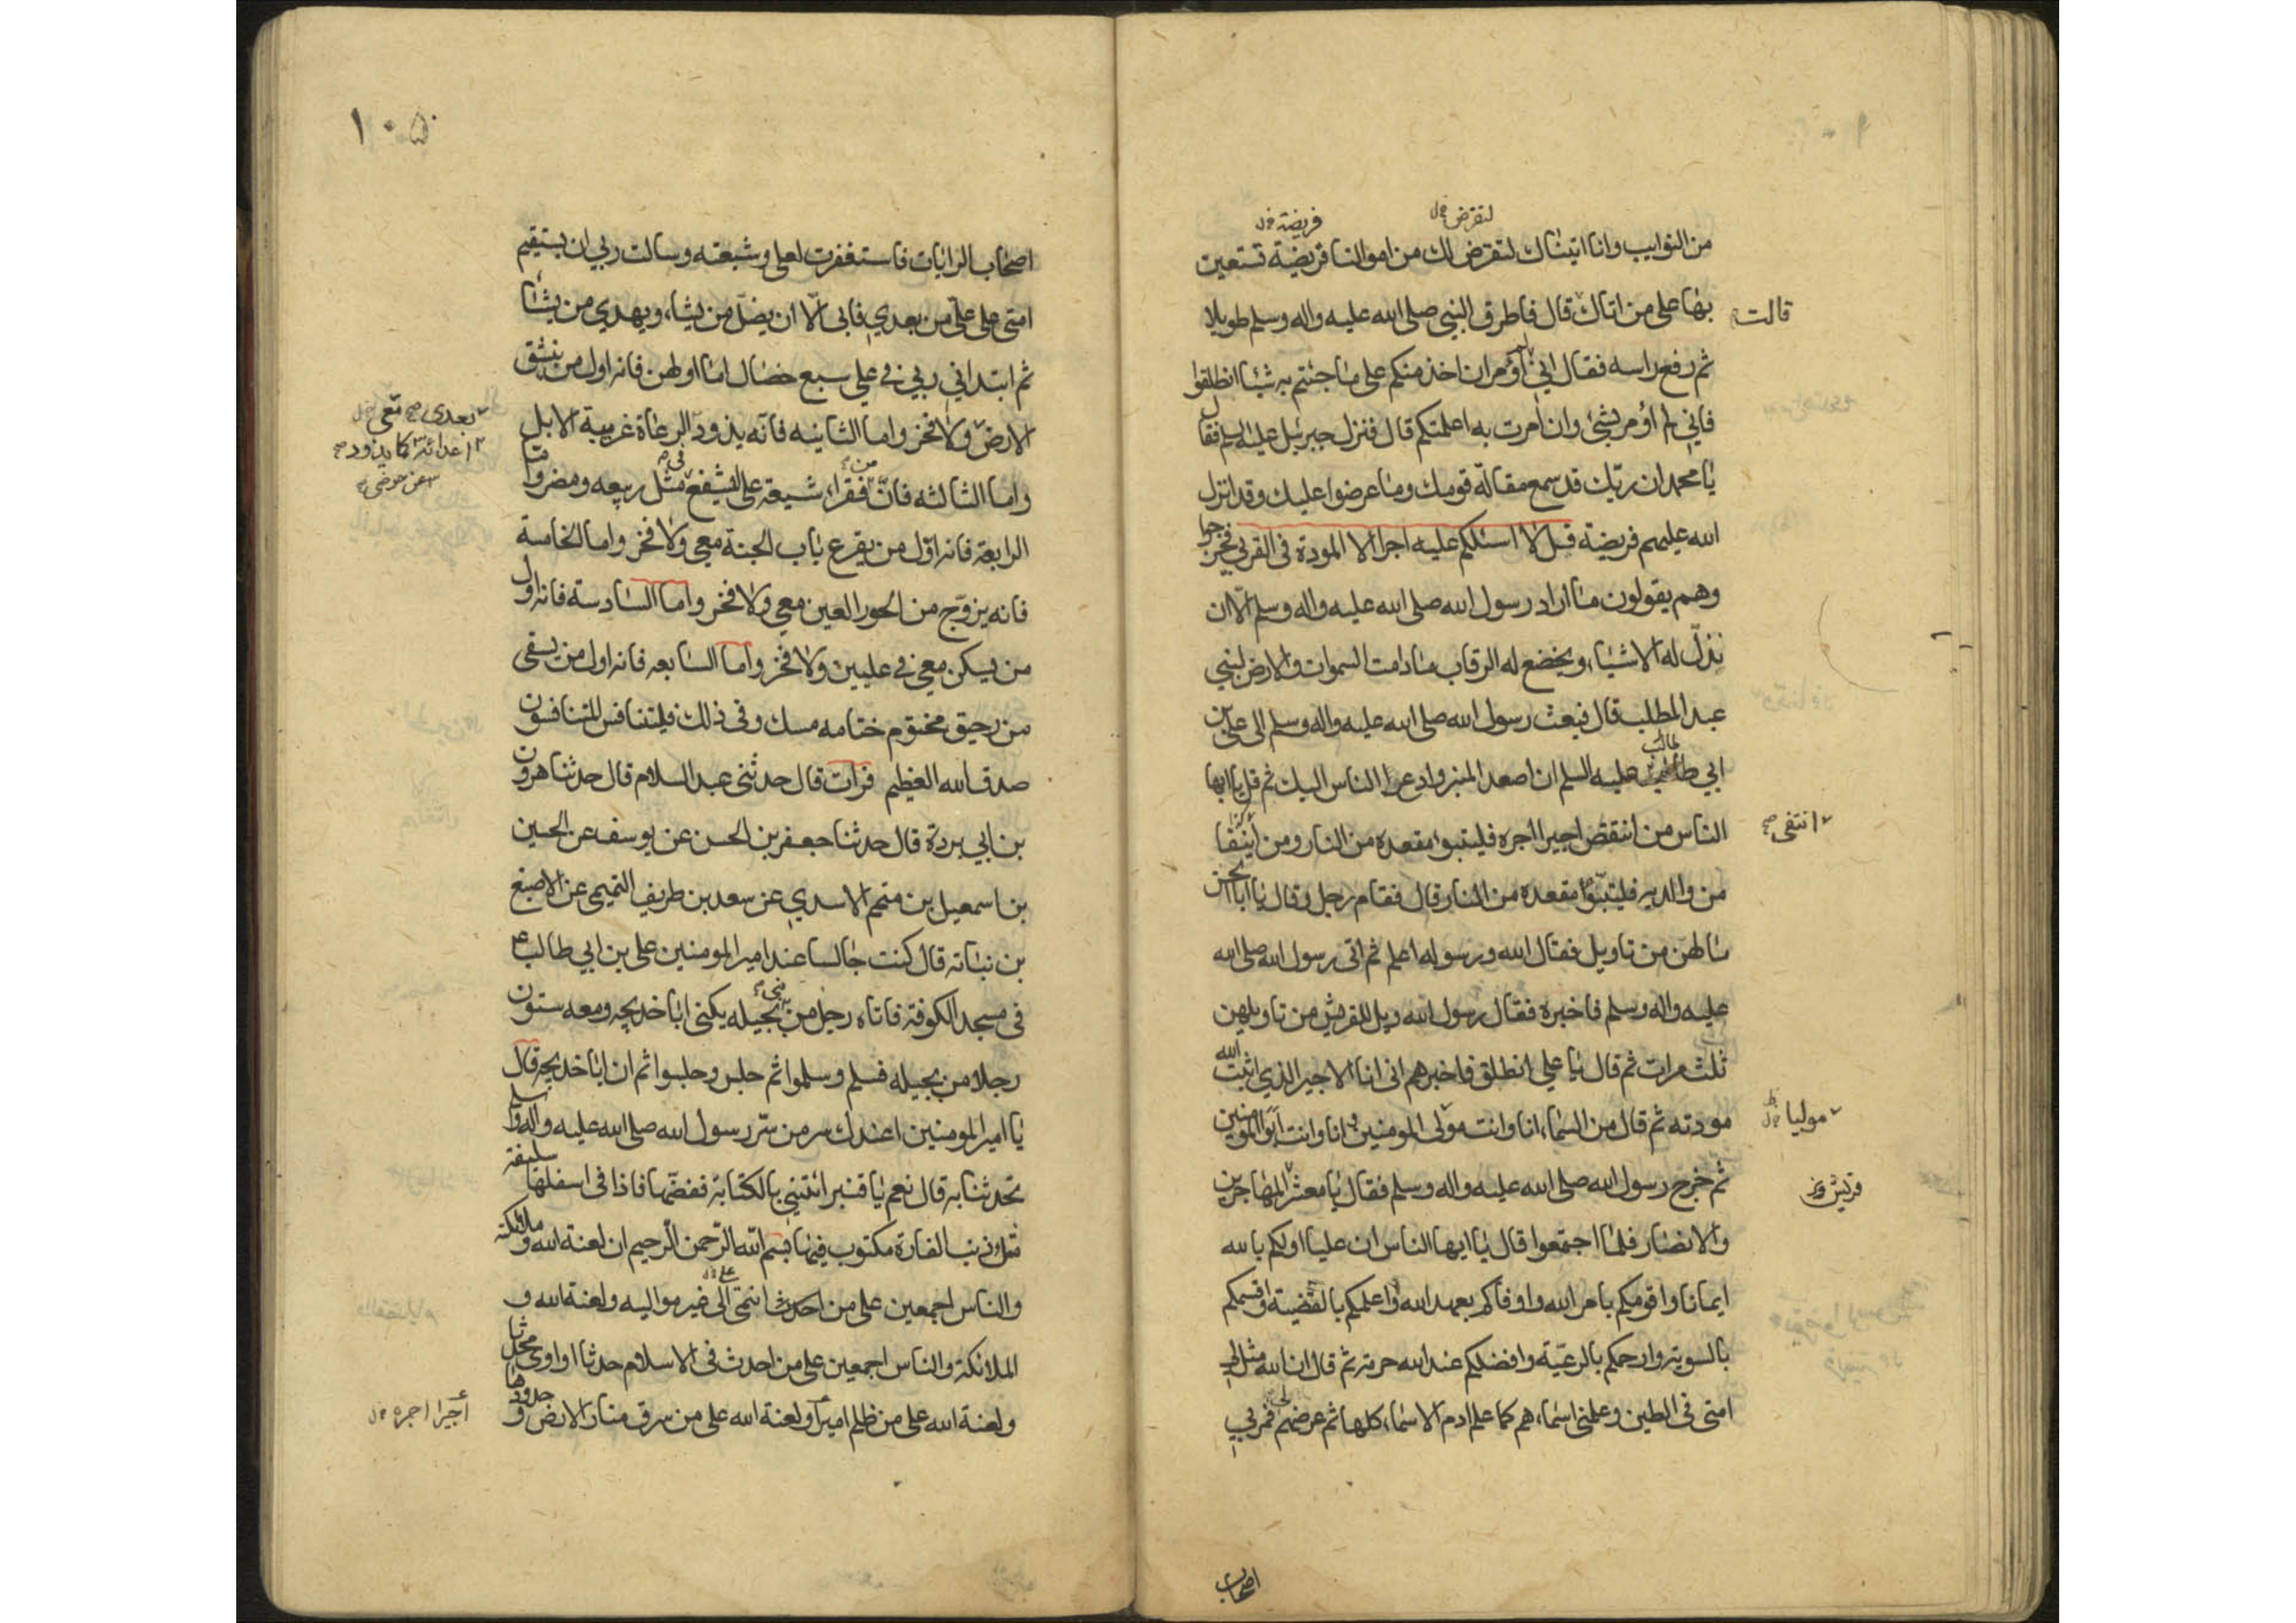 لنفرض خ ل
فريضة خ ل
من النوايب وانا اتيناك لتفرض لك من اموالنا فريضة تستعين
بها على من اتاك قال فاطرق النبي صلى الله عليه واله وسلم طويلا
قالت
ثم رفع راسه فقال اني لم أؤمر ان اخذ منكم على ما جئتم به شيئا انطلقوا
فاني لم اؤمر بشئ وان امرت به اعلمتكم قال فنزل جبرئيل عليه السلم فقال
يا محمد ان ربك قد سمع مقالة قومك وما عرضوا عليك وقد انزل
الله عليهم فريضة قل لا اسئلكم عليه اجرا الا المودة في القربى فخرجوا
وهم يقولون ما اراد رسول الله صلى الله عليه واله وسلم الا ان
نذل له الاشياء ويخضع له الرقاب ما دامت السموات والارض لبني
عبد المطلب قال فبعث رسول الله صلى الله عليه واله وسلم الى علي بن
ابي طالب عليه السلم ان اصعد المنبر وادع الناس اليك ثم قل يا ايها
الناس من انتقص اجيرا اجره فليتبوا مقعده من النار ومن
انتفى صح
من والديه فليتبوا مقعده من النار قال فقام رجل وقال يا ابا الحسن
ما لهن من تاويل فقال الله ورسوله اعلم ثم اتى رسول الله صلى الله
عليه واله وسلم فاخبره فقال رسول الله ويل لقريش من تاويلهن
ثلث مرات ثم قال يا علي انطلق فاخبرهم اني انا الاجير الذي اثبت الله
مودته ثم قال من السماء انا وانت مولى المومنين انا وانت ابوا المومنين
موليا خ ل
ثم خرج رسول الله صلى الله عليه واله وسلم فقال يا معشر المهاجرين
قريش و
والانصار فلما اجتمعوا قال يا ايها الناس ان عليا اولكم بالله
ايمانا واقومكم بامر الله واوفاكم بعهد الله واعلمكم بالقضية واقسمكم
بالسوية وارحمكم بالرعية وافضلكم عند الله حرمة ثم قال ان الله مثل لي
امتي في الطين وعلمني اسماءهم كما علم ادم الاسماء كلها ثم عرضهم فمر بي
اصحاب
١٠٥
اصحاب الرايات فاستغفرت لعلي وشيعته وسالت ربي ان يستقيم
امتي على علي من بعدي فابى الا ان يضل من يشاء ويهدي من يشاء
ثم ابتداني ربي في علي سبع خصال اما اولهن فانه اول من ينشق
الارض ولا فخر واما الثانيه فانه يذود الرعاة غريبة الابل
بعدى صح معي خ ل
اعدائه كما يذود صح
عن حوضي
واما الثالثه فان من فقراء شيعة علي ليشفع في مثل ربيعه ومضر واما
الرابعة فانه اول من يقرع باب الجنة معي ولا فخر واما الخامسة
فانه يزوج من الحور العين معي ولا فخر واما السادسة فانه اول
من يسكن معي في عليين ولا فخر واما السابعه فانه اول من يسقى
من رحيق مختوم ختامه مسك وفي ذلك فليتنافس المتنافسون
صدق الله العظيم فرات قال حدثني عبد السلام قال حدثنا هرون
بن ابي بردة قال حدثنا جعفر بن الحسن عن يوسف عن الحسين
بن اسمعيل بن متمم الاسدي عن سعد بن طريف التميمي عن الاصبغ
بن نباته قال كنت جالسا عند امير المومنين علي بن ابي طالب ع
في مسجد الكوفة فاتاه رجل من بجيله يكنى ابا خديجه ومعه ستون
رجلا من بجيله فسلم وسلموا ثم جلس وجلسوا ثم ان ابا خديجه قال
يا امير المومنين اعندك سر من سر رسول الله صلى الله عليه واله وسلم
تحدثنا به قال نعم يا قنبر ائتني بالكتابة ففضها فاذا في اسفلها سليفة
مثل ذنب الفارة مكتوب فيها بسم الله الرحمن الرحيم ان لعنة الله وملائكته
والناس اجمعين على من انتمى الى غير مواليه ولعنة الله و
الملائكة والناس اجمعين على من احدث في الاسلام حدثا او اوى محدثا
ولعنة الله على من ظلم اميرا ولعنة الله على من سرق منار الارض وحدودها
أجيرا اجره خ ل